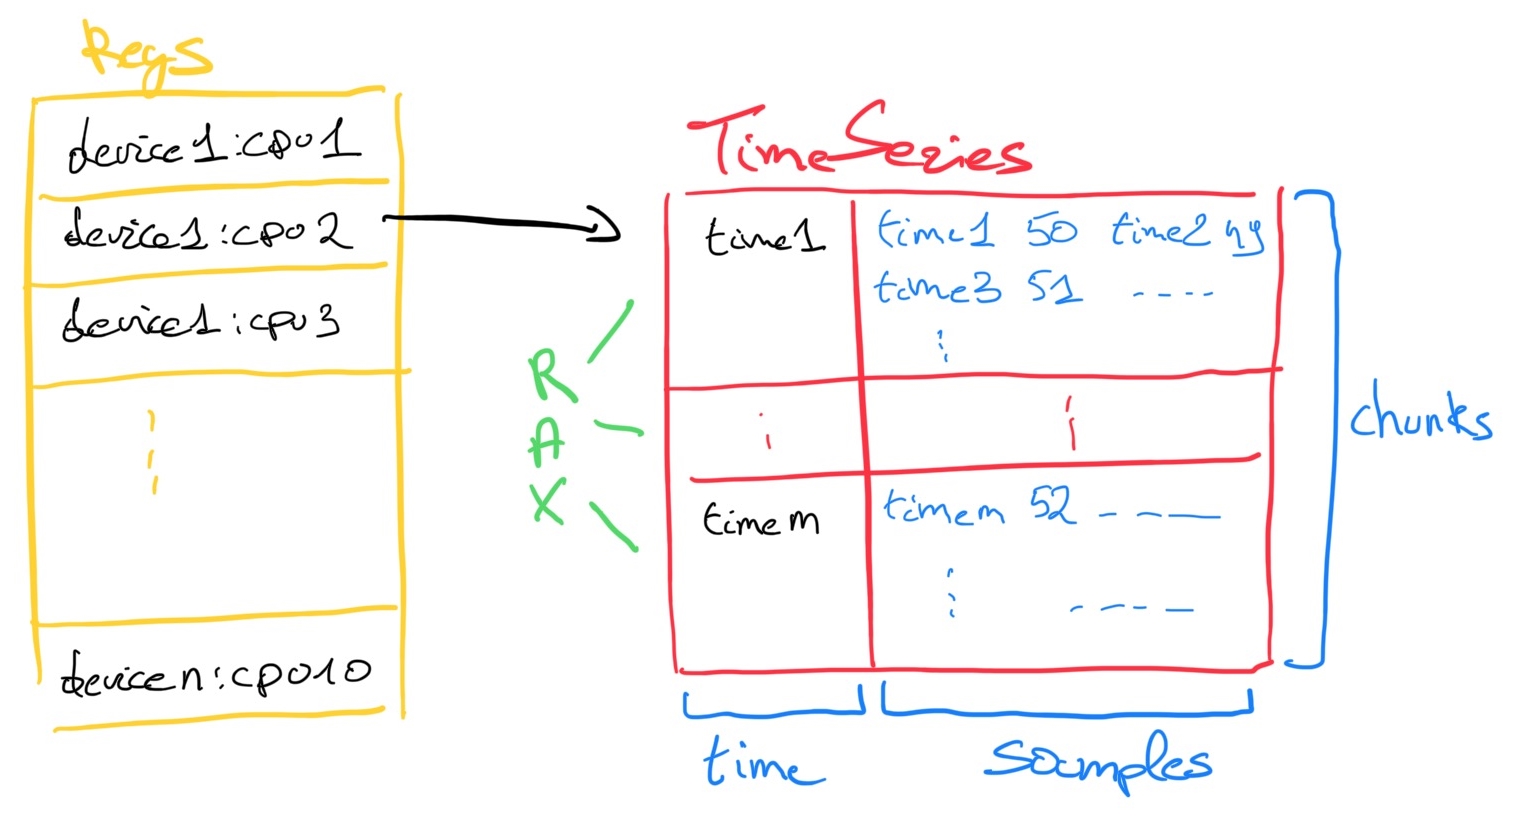 Regs
device1:cpu1
device1:cpu2
device1:cpu3
devicen:cpu10
TimeSeries
time1
time1 50 time2 49
time3 51 ----
timem
timem 52 ----
----
R
A
X
chunks
time
samples